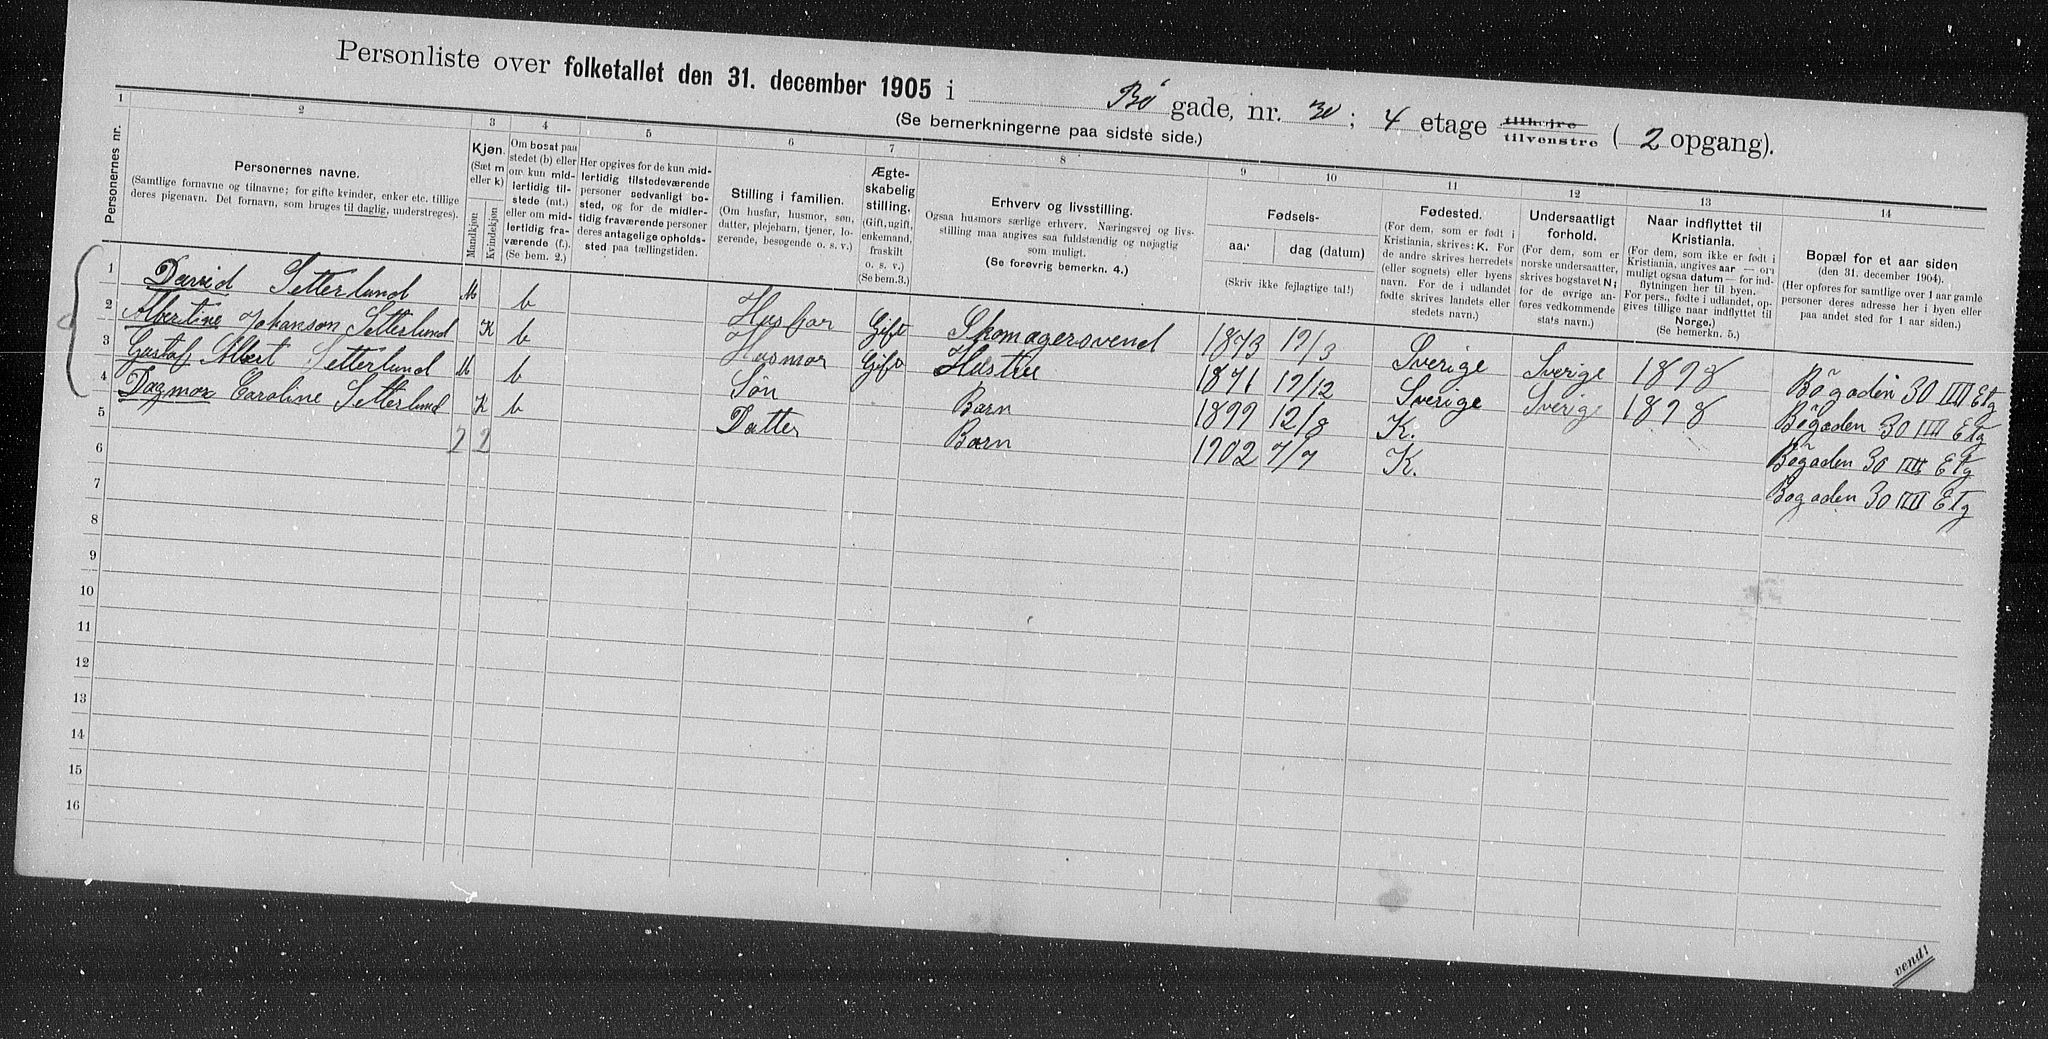 Personliste over folketallet den 31. december 1905 i Bø gade, nr. 30; 4 etage tilhøjre tilvenstre ( 2 opgang).
(Se bernerkningerne paa sidste side.)
1 2 3 4 5 6 7 8 9 10 11 12 13 14
Personernes nr.
Personernes navne.
(Samtlige fornavne og tilnavne; for gifte kvinder, enker etc. tillige
deres pigenavn. Det fornavn, som bruges til daglig, understreges).
Kjøn.
(Sæt m
eller k)
Mandkjøn
Kvindekjøn
Om bosat paa
stedet (b) eller
om kun mid-
lertidig til-
stede (mt.)
eller om mid-
lertidig fra-
værende (f.).
(Se bem. 2.)
Her opgives for de kun mid-
lertidig tilstedeværende
personer sedvanligt bo-
sted, og for de midler-
tidig fraværende personer
deres antagelige opholds-
sted paa tællingstiden.
Stilling i familien.
(Om husfar, husmor, søn,
datter, plejebarn, tjener, lo-
gerende, besøgende o. s. v.)
Ægte-
skabelig
stilling.
(Gift, ugift,
enkemand,
fraskilt
o. s. v.)
(Se bem.3.)
Erhverv og livsstilling.
Ogsaa husmors særlige erhverv. Næringsvej og livs-
stilling maa angives saa fuldstændig og nøjagtig
som muligt.
(Se forøvrig bemerkn. 4.)
Fødsels-
aar.
dag (datum)
(Skriv ikke fejlagtige tal!)
Fødested.
(For dem, som er født i
Kristiania, skrives: K. For
de andre skrives herredets
(eller sognets) eller byens
navn. For de i udlandet
fødte skrives landets eller
stedets navn.)
Undersaatligt
forhold.
(For dem, som er
norske undersaatter,
skrives bogstavet N;
for de øvrige an-
føres vedkommende
stats navn.)
Naar indflyttet til
Kristiania.
(For dem, som ikke er født i
Kristiania, angives aar — om
muligt ogsaa datum for ind-
flytningen her til byen.
For pers., fødte i udlandet, op-
gives tillige naar indflyttet til
Norge.)
(Se bemerkn. 5.)
Bopæl for et aar siden
(den 31. december 1904).
(Her opføres for samtlige over 1 aar gamle
personer deres adresse her i byen eller
paa andet sted for 1 aar siden.)
1 David Setterlund M b Husfar Gift Skomagersvend 1873 19/3 Sverige Sverige 1898 Bögaden 30 IIII Etg
2 Albertine Johanson Setterlund K b Husmor Gift Hustru 1871 19/12 Sverige Sverige 1898 Bögaden 30 IIII Etg
3 Gustaf Albert Setterlund M b Son Barn 1899 12/8 K. Bögaden 30 IIII Etg
4 Dagmar Caroline Setterlund K b Datter Barn 1902 7/7 K. Bögaden 30 IIII Etg
5 2 2
6
7
8
9
10
11
12
13
14
15
16
vend!